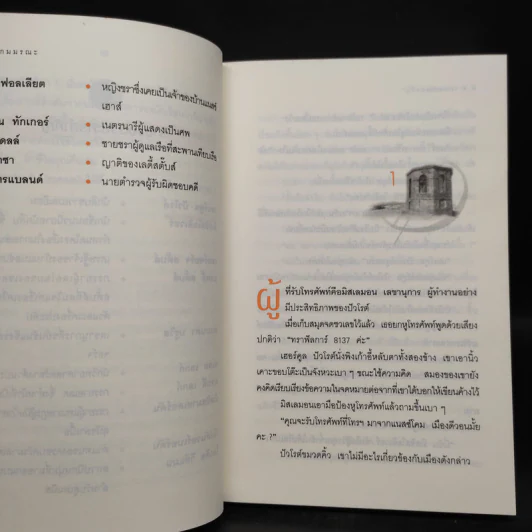 กมมรณะ
ฟอลเลียต
หญิงชราซึ่งเคยเป็นเจ้าของบ้านแนสส์
เฮาส์
น ทักเกอร์
เนตรนารีผู้แสดงเป็นศพ
ดลล์
ชายชราผู้ดูแลเรือที่สะพานเทียบเรือ
าซา
ญาติของเลดี้สตั๊บส์
ทรแบลนด์
นายตำรวจผู้รับผิดชอบคดี
1
ผู้ที่รับโทรศัพท์คือมิสเลมอน เลขานุการ ผู้ทำงานอย่าง
มีประสิทธิภาพของปัวโรต์
เมื่อเก็บสมุดจดชวเลขไว้แล้ว เธอยกหูโทรศัพท์พูดด้วยเสียง
ปกติว่า "ทราฟัลการ์ 8137 ค่ะ"
เฮอร์คูล ปัวโรต์นั่งพิงเก้าอี้หลับตาทั้งสองข้าง เขาเอานิ้ว
เคาะขอบโต๊ะเป็นจังหวะเบา ๆ ขณะใช้ความคิด สมองของเขายัง
คงคิดเรียบเรียงข้อความในจดหมายต่อจากที่เขาได้บอกให้เขียนค้างไว้
มิสเลมอนเอามือป้องหูโทรศัพท์แล้วถามขึ้นเบา ๆ
"คุณจะรับโทรศัพท์ที่โทรฯ มาจากแนสซ์โคม เมืองดีวอนมั้ย
คะ ?"
ปัวโรต์ขมวดคิ้ว เขาไม่มีอะไรเกี่ยวข้องกับเมืองดังกล่าว